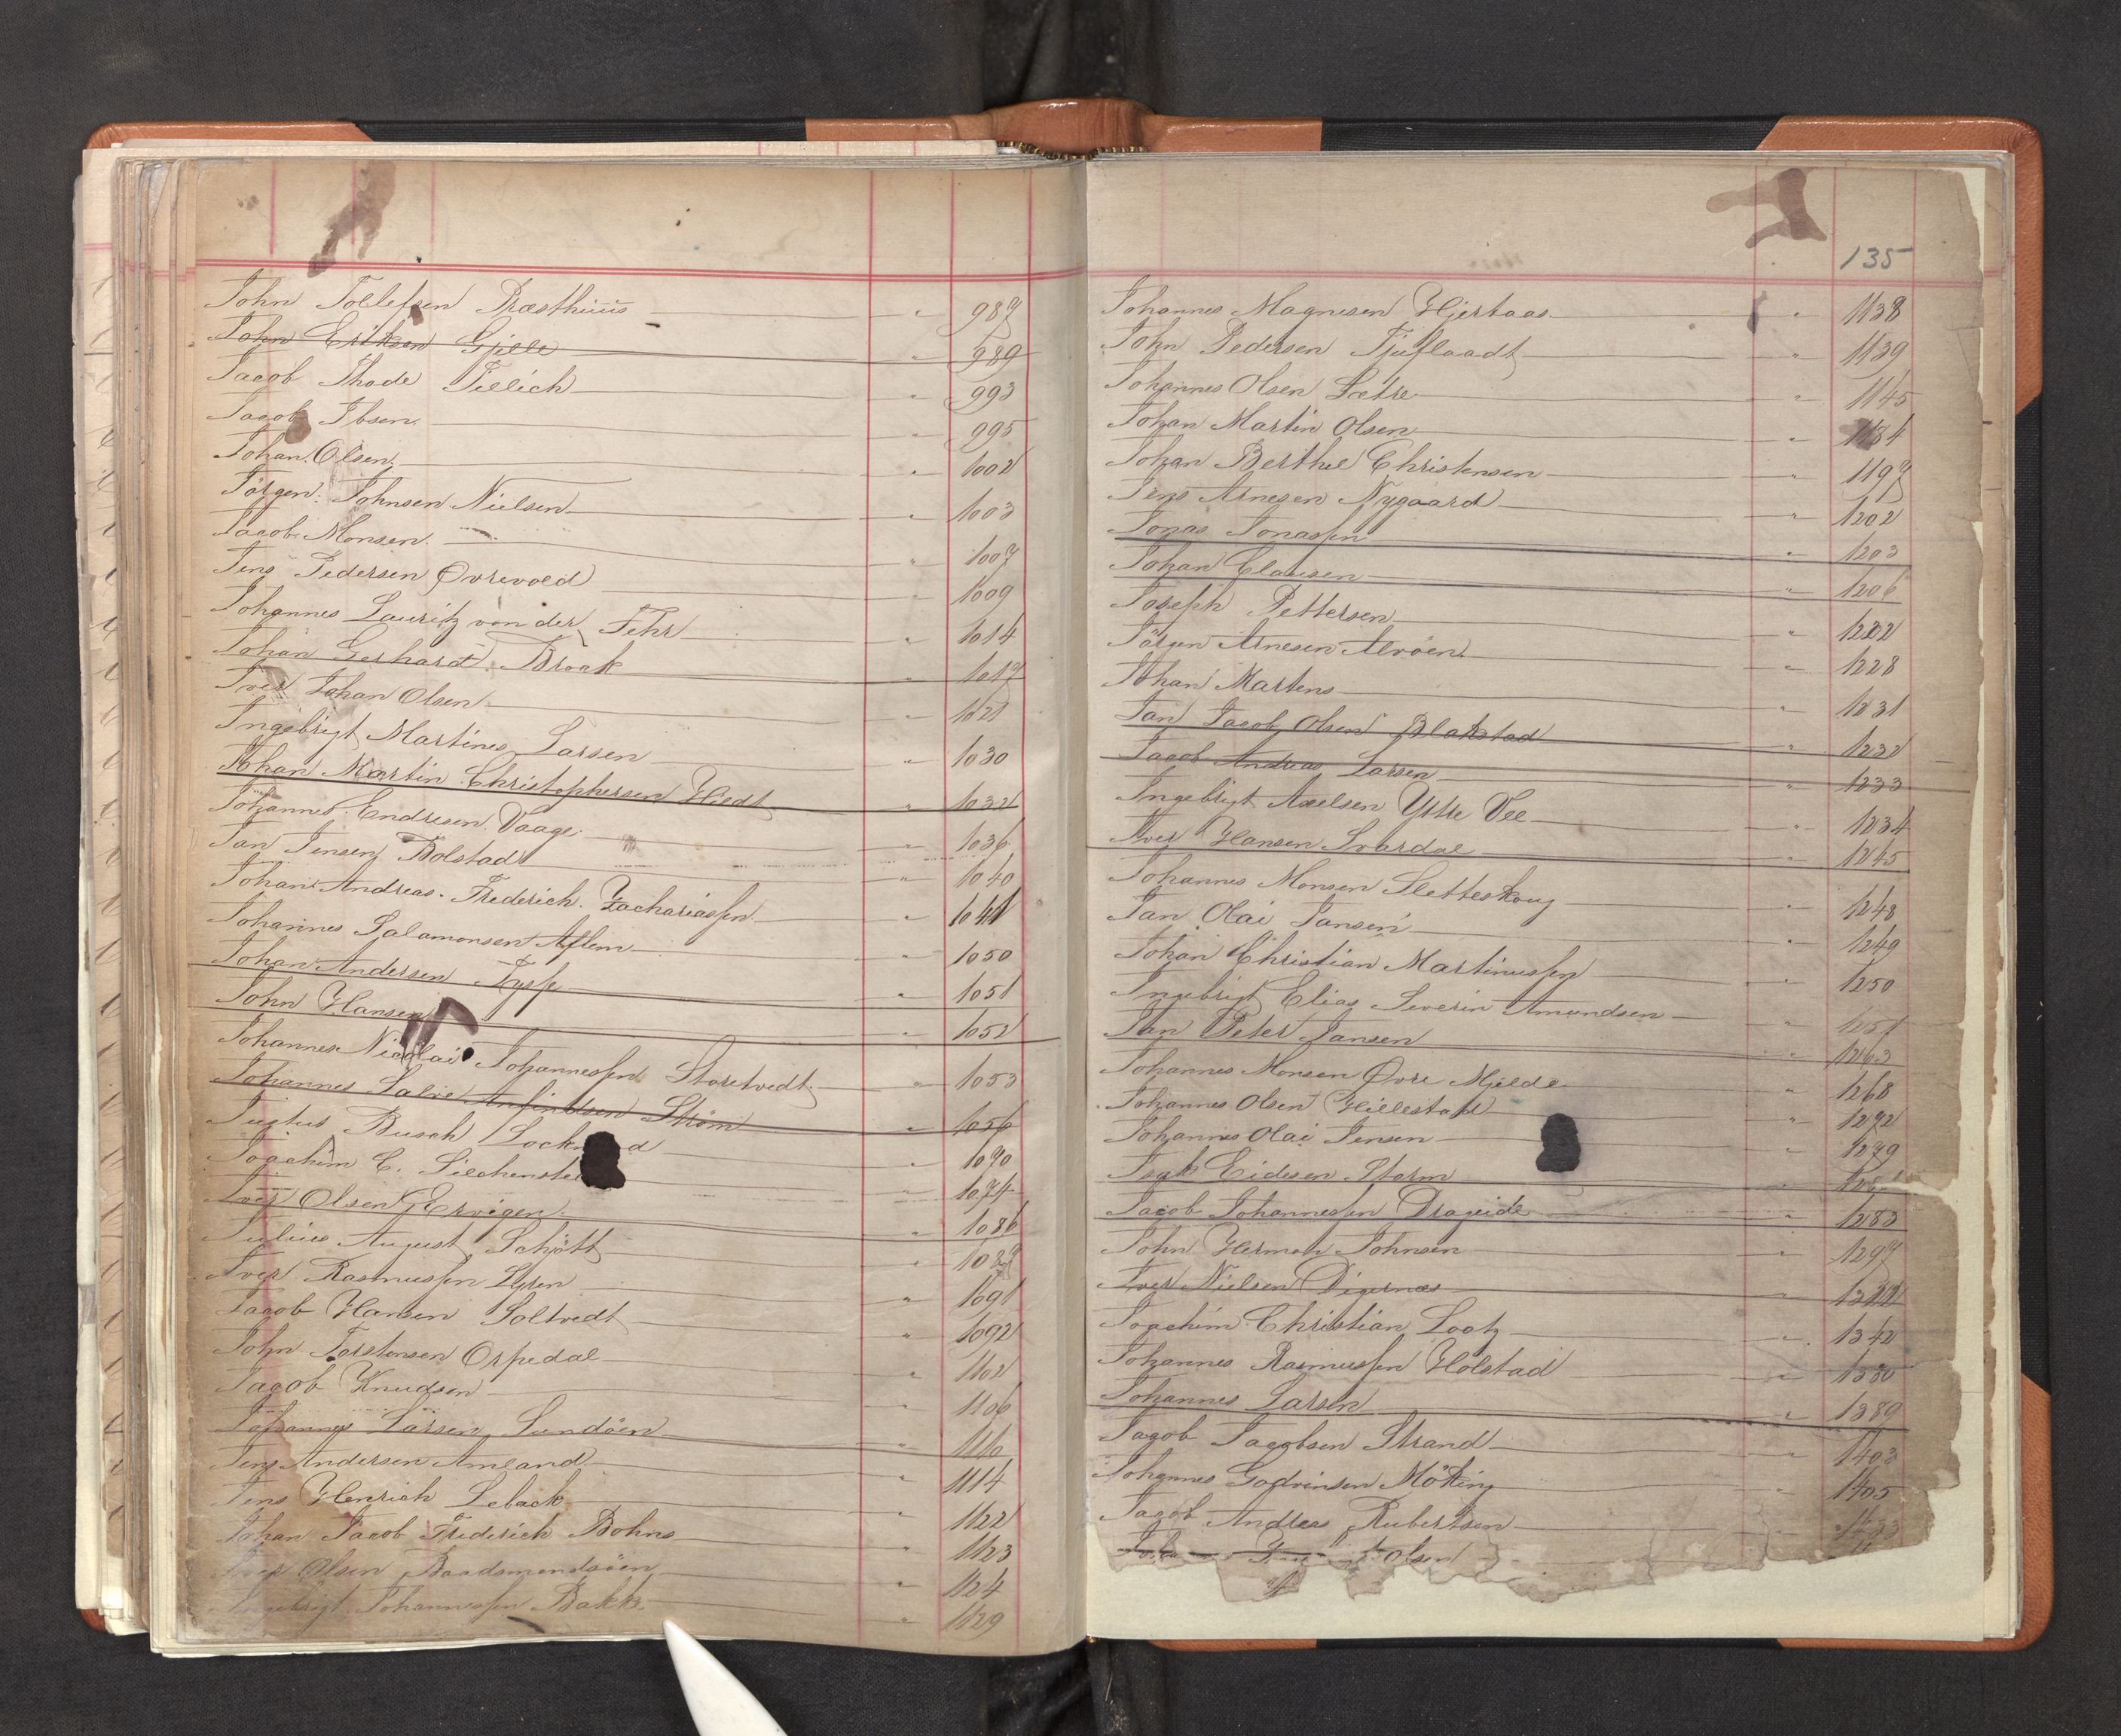 John Tollefsen Præsthuus " 987
John Eriksen Gjelle " 989
Jacob Thode Tillich " 993
Jacob Ibsen. " 995
Johan Olsen " 1002
Jörgen Johnsen Nielsen " 1003
Jacob Monsen. " 1007
Jens Pedersen Øvrevold " 1009
Johannes Lauritz von der Fehr " 1014
Johan Gerhard Brook " 1017
Iver Johan Olsen " 1021
Ingebrigt Martines Larsen " 1030
Johan Martin Christophersen Hiedt " 1032
Johannes Endresen Vaage " 1036
Jan Jensen Bolstad " 1040
Johan Andreas Frederich Zachariassen " 1041
Johannes Salamonsen Aflem " 1050
Johan Andersen Fysse " 1051
John Hansen " 1052
Johannes Nicolai Johannessen Storetvedt " 1053
Johannes Salve Strøm " 1056
Justus Busch " 1070
Joachim C. " 1074
Iver Olsen Ervigen " 1086
Julius August Schjött "
Iver Rasmussen Lyren " 1091
Jacob Hansen Soltvedt " 1092
John Torstensen Orpedal " 1102
Jacob Knudsen " 1106
Johannes Larsen Sundöen " 1110
Jens Andersen Amland " 1114
Jens Henrich Seback " 1122
Johan Jacob Frederich Bohns " 1123
Iver Olsen Baadsmendsöen " 1124
Ingebrigt Johannessen Bakke " 1129
135
Johannes Magnesen Hjertaas " 1138
John Pedersen Tjuflaadt " 1139
Johannes Olsen Sætre " 1145
Johan Martin Olsen " 1184
Johan Berthel Christensen " 1197
Jens Arnesen Nygaard " 1202
Jonas Jonassen " 1203
Johan Clausen " 1206
Joseph Pettersen " 1222
Jörgen Arnesen Alvöen " 1228
Johan Martens " 1231
Jan Jacob Olsen Blakstad " 1232
Jacob Andreas Larsen " 1233
Ingebrigt Axelsen Ytre Vee " 1234
Iver Hansen Svardal " 1245
Johannes Monsen Sletteskoug " 1248
Jan Olai Jansen " 1249
Johan Christian Martinussen " 1250
Ingebrigt Elias Severin Amundsen " 1251
Jan Peter Jansen " 1263
Johannes Monsen Øvre Mjelde " 1268
Johannes Olsen Hillestad " 1272
Johannes Olai Jensen " 1279
Isak Eidesen Storm "
Jacob Johannessen Drageide " 1283
John Herman Johnsen " 1297
Iver Nielsen Digernæs "
Joachim Christian Lootz " 1342
Johannes Rasmussen Holstad " 1380
Johannes Larsen " 1389
Jacob Jacobsen Strand " 1403
Johannes Godvinsen Möking " 1405
Jacob Andreas Rubertsen
Olsen